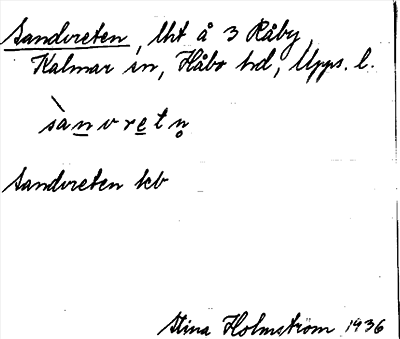 Sandvreten, lht å 3 Råby,
Kalmar sn, Håbo hd, Upps. l.
sànvretn̥
Sandvreten kb
Stina Holmström 1936